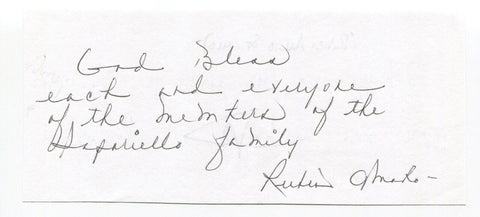 God Bless
each and everyone
of the members of the
family
Ruben Amaro